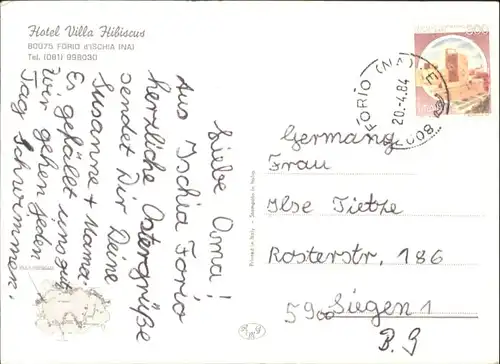 Hotel Villa Hibiscus
80075 FORIO d'ISCHIA (NA)
Tel. (081) 998030
Liebe Oma!
Aus Ischia Forio
herzliche Ostergrüße
sendet Dir Deine
Susanne + Mama.
Es gefällt uns gut
wir gehen jeden
Tag Schwimmen.
20.4.84
FORIO (NA)
80075
Germany
Frau
Ilse Tietze
Rosterstr. 186
5900 Siegen 1
B.G
Printed in Italy